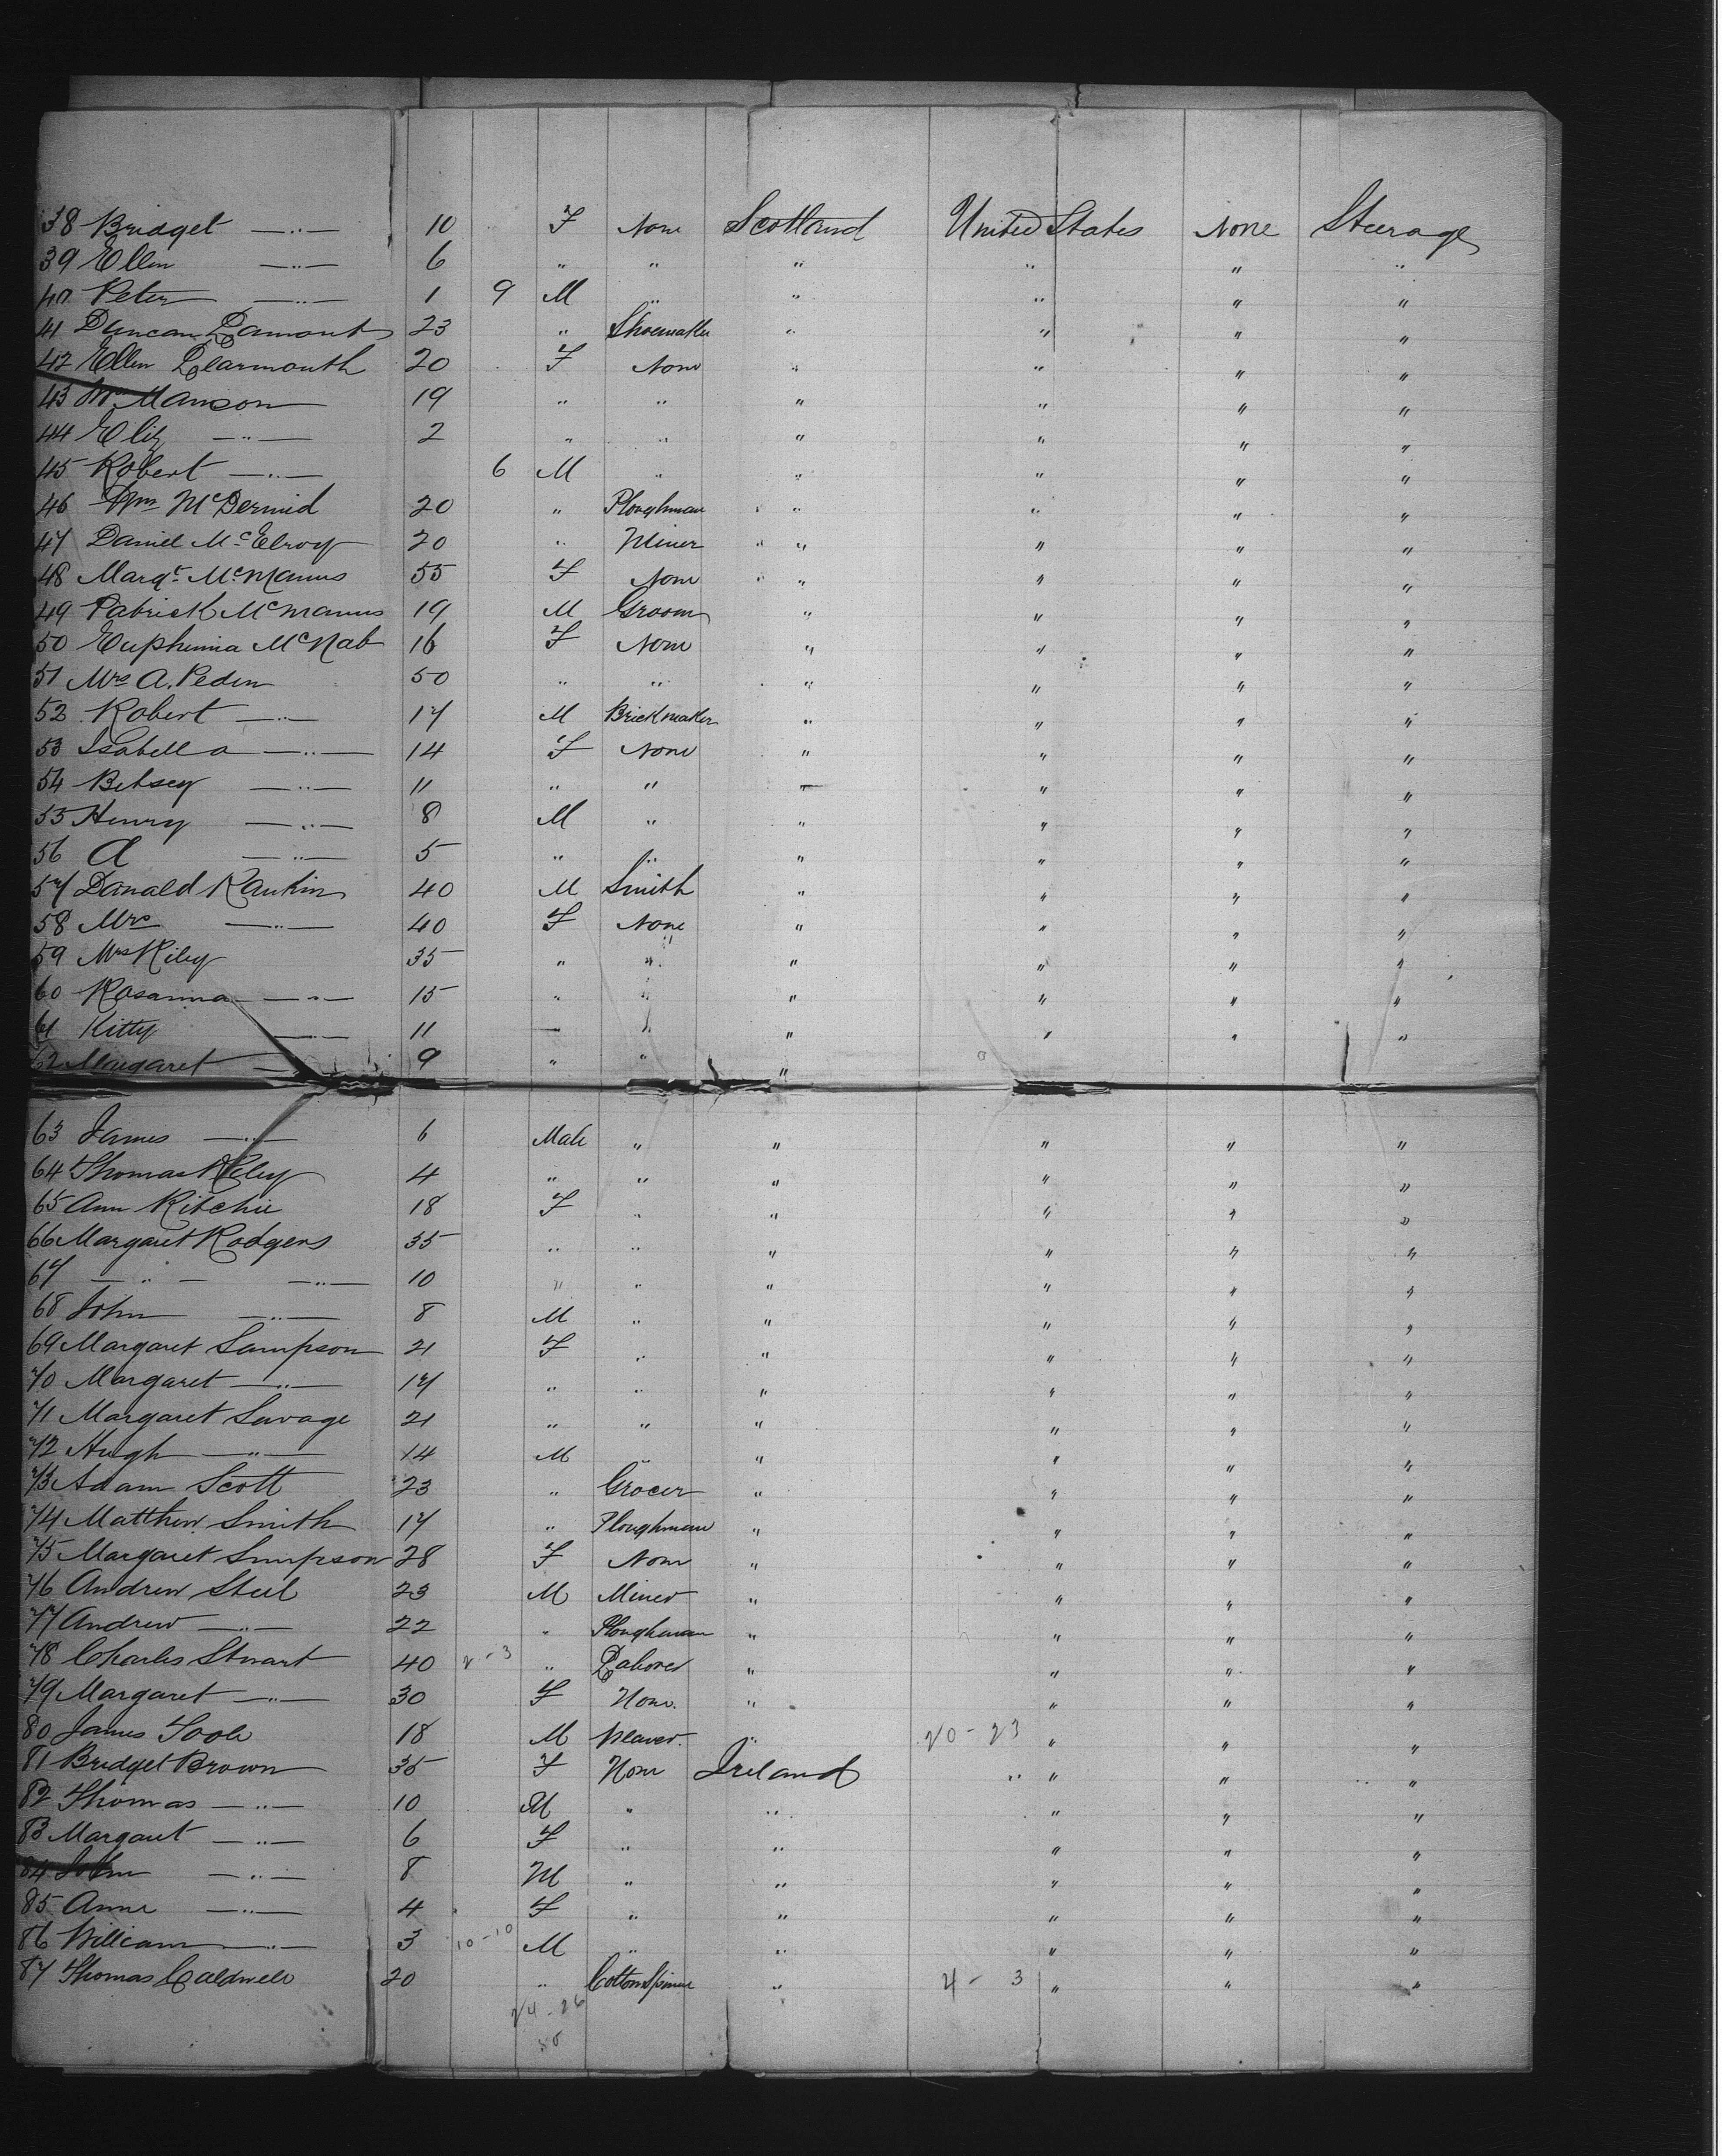 38 Bridget —"— 10 F None Scotland United States None Steerage
39 Ellen —"— 6 " " " " " "
40 Peter —"— 1 9 M " " " " "
41 Duncan Lamont 23 " Shoemaker " " " "
42 Ellen Learmouth 20 F None " " " "
43 Mrs Manson 19 " " " " " "
44 Eliz —"— 2 " " " " " "
45 Robert —"— 6 M " " " " "
46 Wm McDermid 20 " Ploughman " " " "
47 Daniel McElroy 20 " Miner " " " "
48 Margt McManus 55 F None " " " "
49 Patrick McManus 19 M Groom " " " "
50 Euphemia McNab 16 F None " " " "
51 Mrs A. Peden 50 " " " " " "
52 Robert —"— 17 M Brickmaker " " " "
53 Isabella —"— 14 F None " " " "
54 Betsey —"— 11 " " " " " "
55 Henry —"— 8 M " " " " "
56 A —"— 5 " " " " " "
57 Donald Rankin 40 M Smith " " " "
58 Mrs —"— 40 F None " " " "
59 Mrs Riley 35 " " " " " "
60 Rosanna —"— 15 " " " " " "
61 Kitty —"— 11 — " " " " "
62 Margaret — 9 " " "
63 James —"— 6 Male " " " " "
64 Thomas Riley 4 " " " " " "
65 Ann Ritchie 18 F " " " " "
66 Margaret Rodgers 35 " " " " " "
67 —"— —"— 10 " " " " " "
68 John —"— 8 M " " " " "
69 Margaret Sampson 21 F " " " " "
70 Margaret —"— 17 " " " " " "
71 Margaret Savage 21 " " " " " "
72 Hugh —"— 14 M " " " " "
73 Adam Scott 23 " Grocer " " " "
74 Matthew Smith 17 " Ploughman " " " "
75 Margaret Simpson 28 F None " " " "
76 Andrew Steel 23 M Miner " " " "
77 Andrew —"— 22 " Ploughman " " " "
78 Charles Stuart 40 2-3 " Laborer " " " "
79 Margaret —"— 30 F None " " " "
80 James Toole 18 M Weaver " 20-23 " " "
81 Bridget Brown 35 F None Ireland " " " "
82 Thomas —"— 10 M " " " " "
83 Margaret —"— 6 F " " " " "
84 John —"— 8 M " " " " "
85 Anne —"— 4 F " " " " "
86 William —"— 3 10-10 M " " " " "
87 Thomas Caldwell 20 " Cotton Spinner " 4-3 " " "
24-26
50